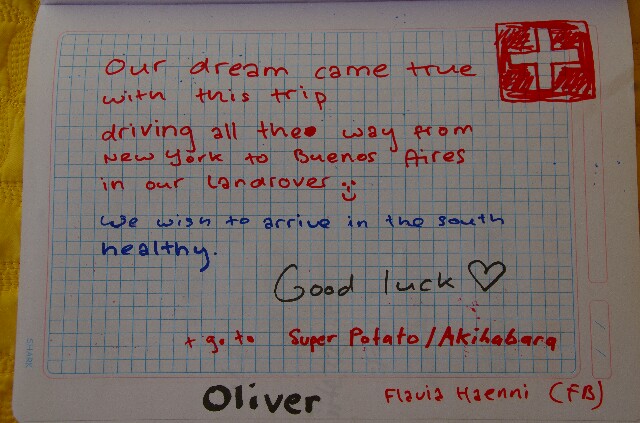 Our dream came true
with this trip
driving all the way from
New York to Buenos Aires
in our Landrover
We wish to arrive in the south
healthy.
Good luck ♡
+ go to Super Potato/Akihabara
Oliver
Flavia Haenni (FB)
SHARK